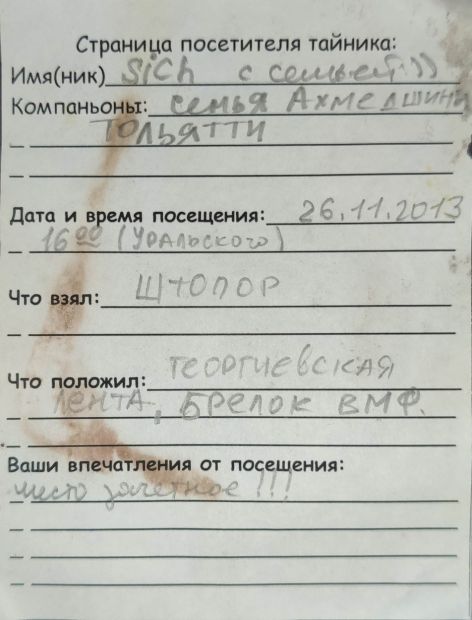 Страница посетителя тайника:
Имя(ник) SiCh с семьей))
Компаньоны: семья Ахмедшины
Тольятти
Дата и время посещения: 26.11.2013
16 00 (Уральского)
Что взял: ШТОПОР
Что положил: ГЕОРГИЕВСКАЯ
ЛЕНТА, БРЕЛОК ВМФ.
Ваши впечатления от посещения:
место зачетное!!!